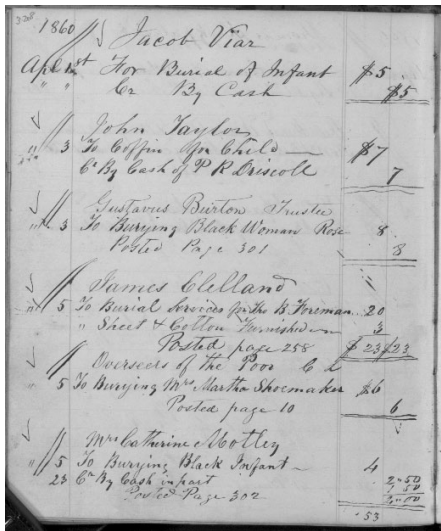 1860
Jacob Viar
Apl 1st For Burial of Infant $5
" " Cr By Cash $5
John Taylor
" 3 To Coffin for Child $7
Cr By Cash of P R Driscoll 7
Gustavus Burton Trustee
" 3 To Burying Black Woman Rose 8
Posted Page 301 8
James Clelland
" 5 To Burial Services for Tho B. Foreman 20
" Sheet & Cotton Furnished 3
Posted page 258 $23 $23
Overseers of the Poor C L
" 5 To Burying Mrs Martha Shoemaker $6
Posted page 10 6
Mrs Catherine Motley
" 5 To Burying Black Infant 4
23 Cr By Cash in part 2.50
Posted Page 302
53